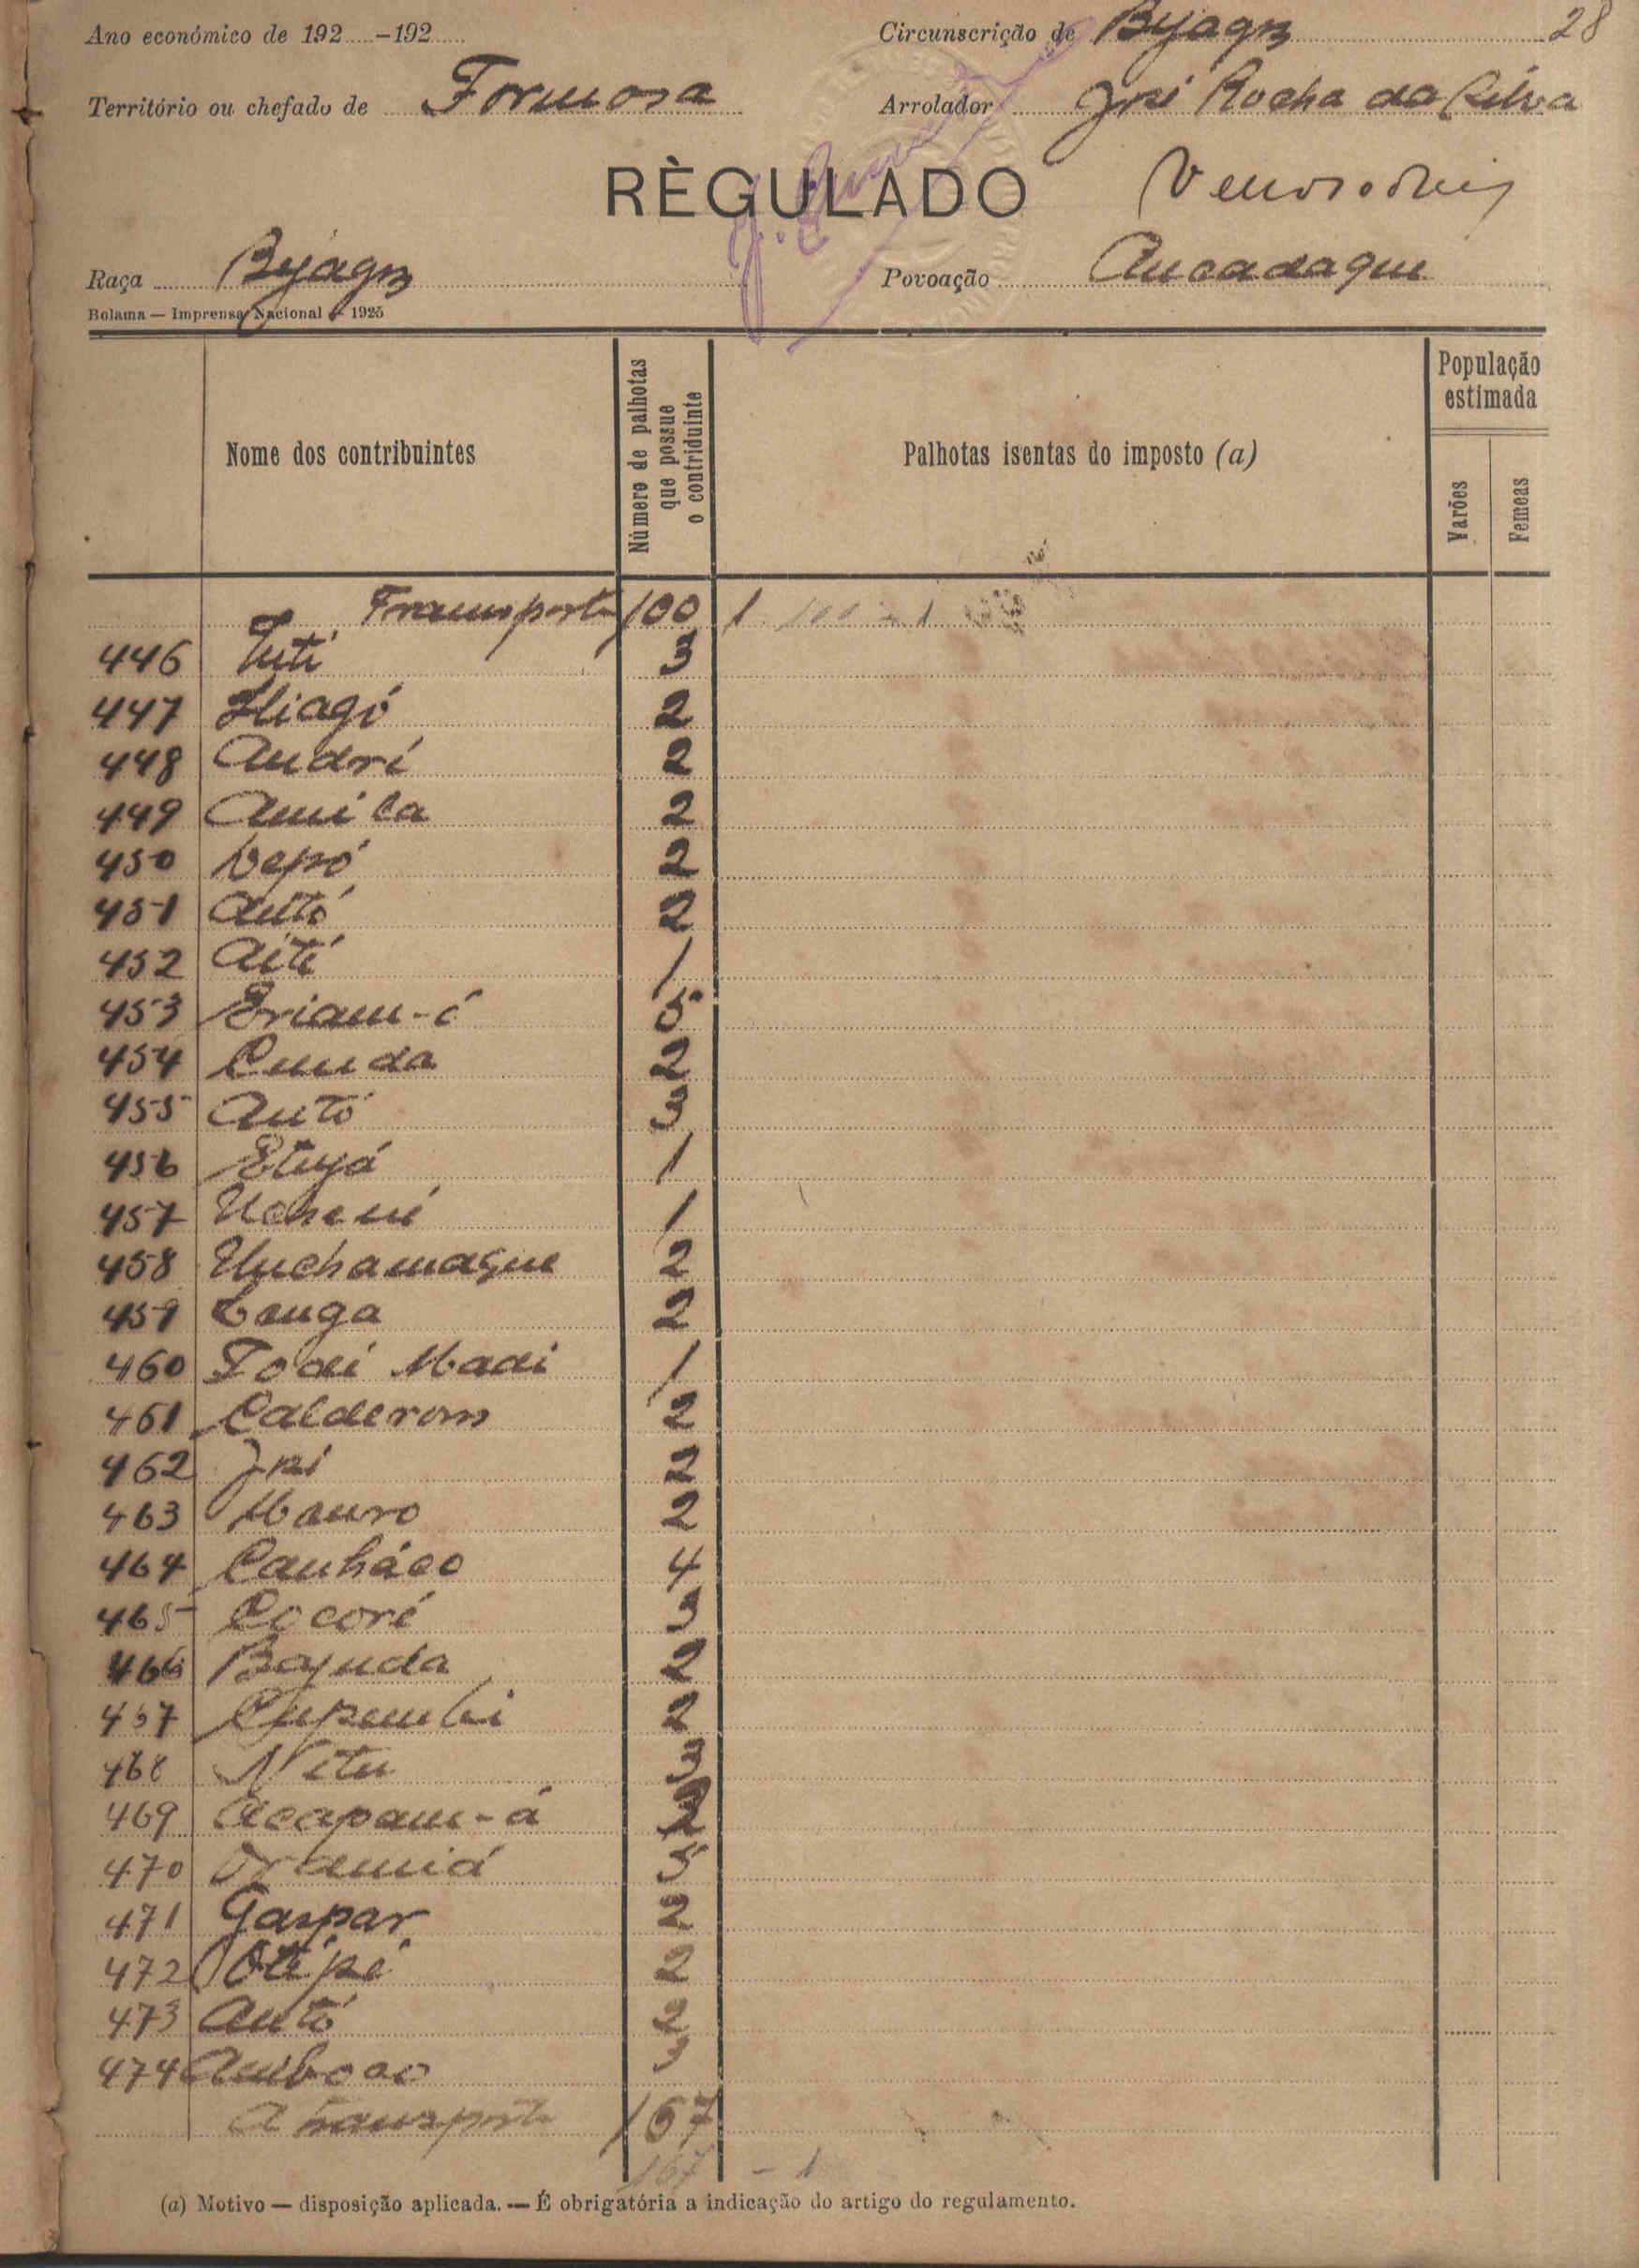 Ano económico de 192 -192
Circunscrição de Byagoz 28
Território ou chefado de Formosa
Arrolador José Rocha da Silva
RÈGULADO
Raça Byagoz
Povoação Ancadaque
Bolama — Imprensa Nacional — 1925
Nome dos contribuintes
Número de palhotas que possue o contriduinte
Palhotas isentas do imposto (a)
População estimada
Varões
Femeas
Transporte 100 1 100 - 1
446 Tuti 3
447 Iliagó 2
448 André 2
449 2
450 Vepó 2
451 Antó 2
452 Aité 1
453 5
454 Cunda 2
455 Antó 3
456 Etuyá 1
457 1
458 Unchamaque 2
459 Canga 2
460 Fodé Madi 1
461 Calderom 2
462 José 2
463 Mauro 2
464 Canháco 4
465 Cocoré 3
466 Bajuda 2
467 2
468 Nitu 3
469 Acapam-á 2
470 5
471 Gaspar 2
472 Otépé 2
473 Antó 2
474 3
A transporte 167
167 - 1
(a) Motivo — disposição aplicada. — É obrigatória a indicação do artigo do regulamento.